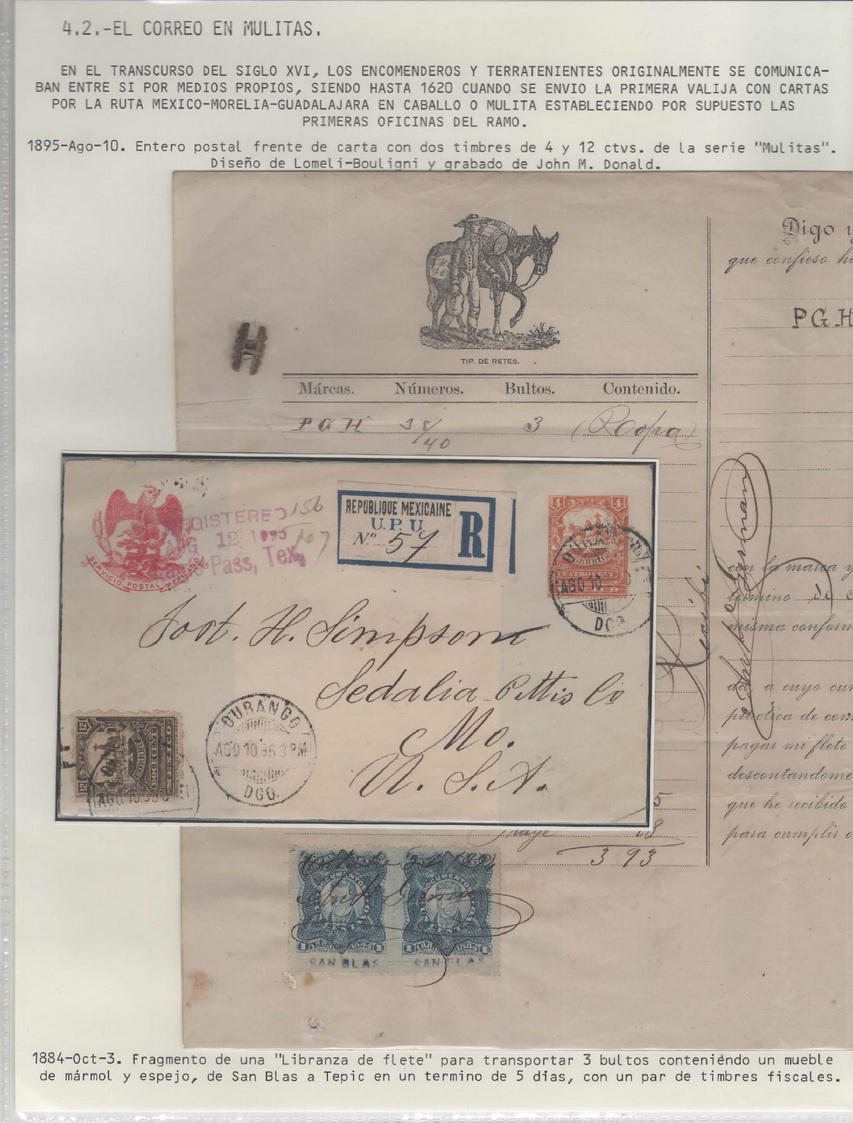 4.2.-EL CORREO EN MULITAS.
EN EL TRANSCURSO DEL SIGLO XVI, LOS ENCOMENDEROS Y TERRATENIENTES ORIGINALMENTE SE COMUNICA-
BAN ENTRE SI POR MEDIOS PROPIOS, SIENDO HASTA 1620 CUANDO SE ENVIO LA PRIMERA VALIJA CON CARTAS
POR LA RUTA MEXICO-MORELIA-GUADALAJARA EN CABALLO O MULITA ESTABLECIENDO POR SUPUESTO LAS
PRIMERAS OFICINAS DEL RAMO.
1895-Ago-10. Entero postal frente de carta con dos timbres de 4 y 12 ctvs. de la serie "Mulitas".
Diseño de Lomeli-Bouligni y grabado de John M. Donald.
TIP. DE RETES.
Márcas. Números. Bultos. Contenido.
PGH 38/40 3 (Ropa)
Digo y
que confieso h
PGH
con la marca y
término de
misma confor
da, a cuyo cu
práctica de co
pagar mi flete
descontandome
que he recibido
para cumplir
Recibí
SERVICIO POSTAL MEXICANO
REGISTERED
12 1895
Pass, Tex.
156
107
REPUBLIQUE MEXICAINE
U.P.U.
No. 57
R
4 4
DURANGO
AGO 10
DGO.
Post. H. Simpson
Sedalia Pettis Co
Mo.
U. S. A.
12 12
DURANGO
AGO 10 95 3 PM
DGO.
AGO 10
5
18
3 93
DOCUMENTOS DOCUMENTOS
SAN BLAS SAN BLAS
1884-Oct-3. Fragmento de una "Libranza de flete" para transportar 3 bultos conteniéndo un mueble
de mármol y espejo, de San Blas a Tepic en un termino de 5 días, con un par de timbres fiscales.